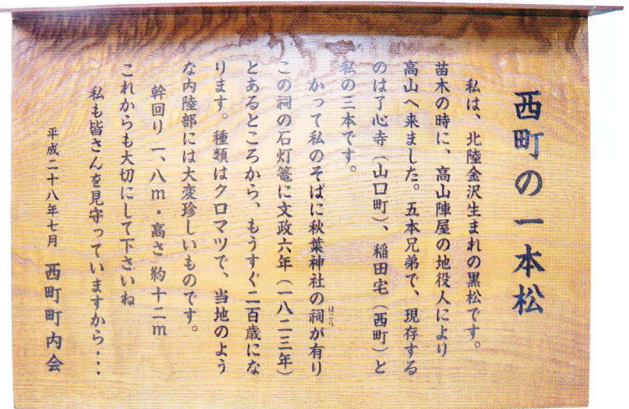 西町の一本松
私は、北陸金沢生まれの黒松です。
苗木の時に、高山陣屋の地役人により
高山へ来ました。五本兄弟で、現存する
のは了心寺（山口町）、稲田宅（西町）と
私の三本です。
かって私のそばに秋葉神社の祠が有り
ほこら
この祠の石灯篭に文政六年（一八二三年）
とあるところから、もうすぐ二百歳にな
ります。種類はクロマツで、当地のよう
な内陸部には大変珍しいものです。
幹回り 一、八m・高さ 約十二m
これからも大切にして下さいね
私も皆さんを見守っていますから・・・
平成二十八年七月 西町町内会